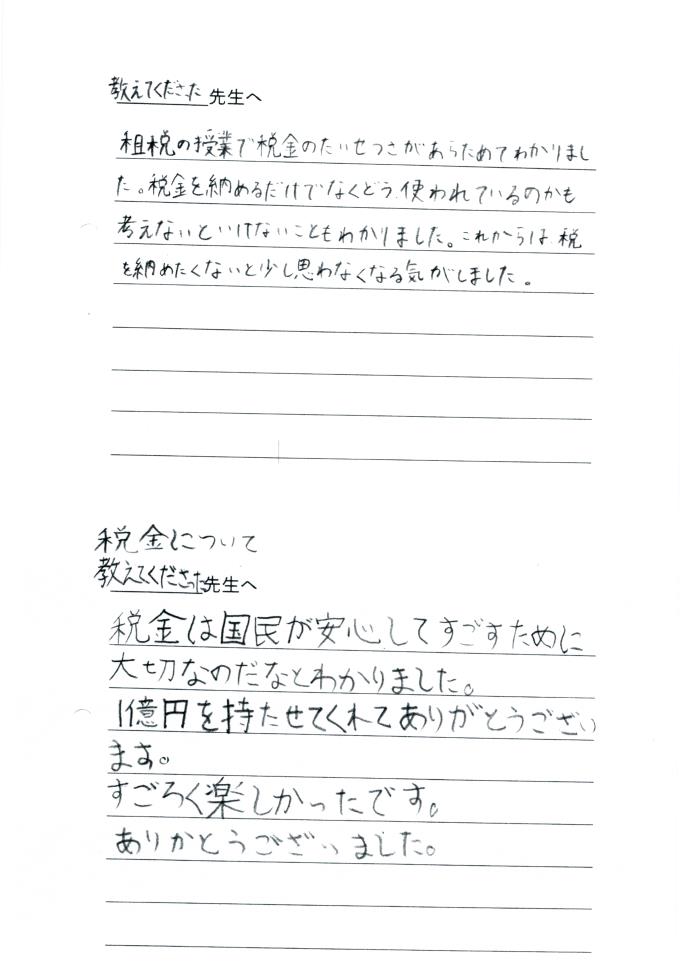 教えてくださった 先生へ
租税の授業で税金のたいせつさがあらためてわかりまし
た。税金を納めるだけでなくどう使われているのかも
考えないといけないこともわかりました。これからは税
を納めたくないと少し思わなくなる気がしました。
税金について
教えてくださった先生へ
税金は国民が安心してすごすために
大切なのだなとわかりました。
1億円を持たせてくれてありがとうござい
ます。
すごろく楽しかったです。
ありがとうございました。